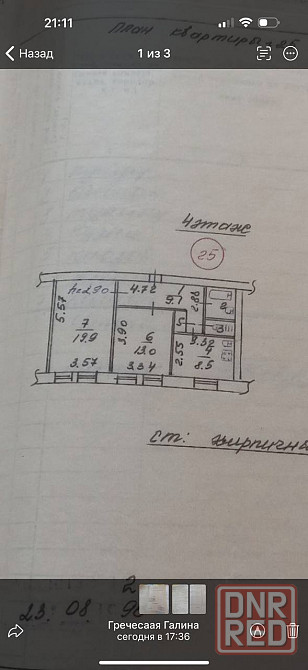 21:11
Назад
1 из 3
План квартиры 25
4 этаж
25
h=2.90
4.72
1
9.1
2.86
5.57
7
19.9
3.90
6
13.0
3.57
3.34
5
2.55
3.32
4
8.5
2
3
ст: кирпичн
2
23. 08. 9
Гречесаая Галина
сегодня в 17:36
DNR
RED